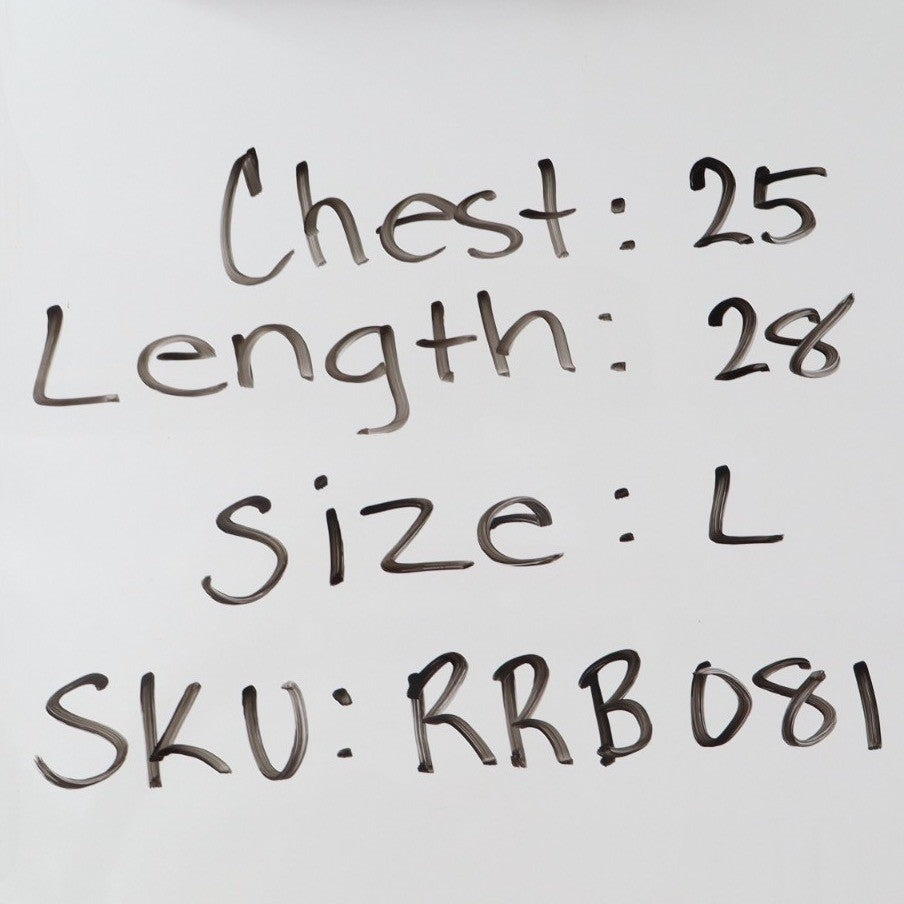 Chest: 25
Length: 28
Size: L
SKU: RRB081